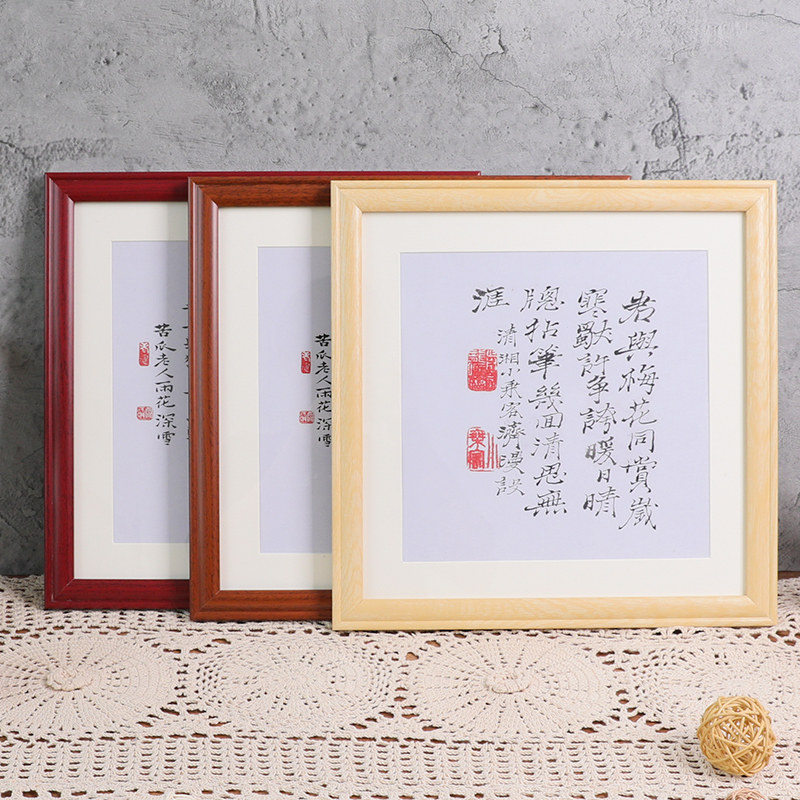 君與梅花同賞歲
寒獸許爭誇暖日晴
牕拈筆幾回清思無
涯
清湘小乘客濟漫設
苦瓜老人雨花深雪
苦瓜老人雨花深雪